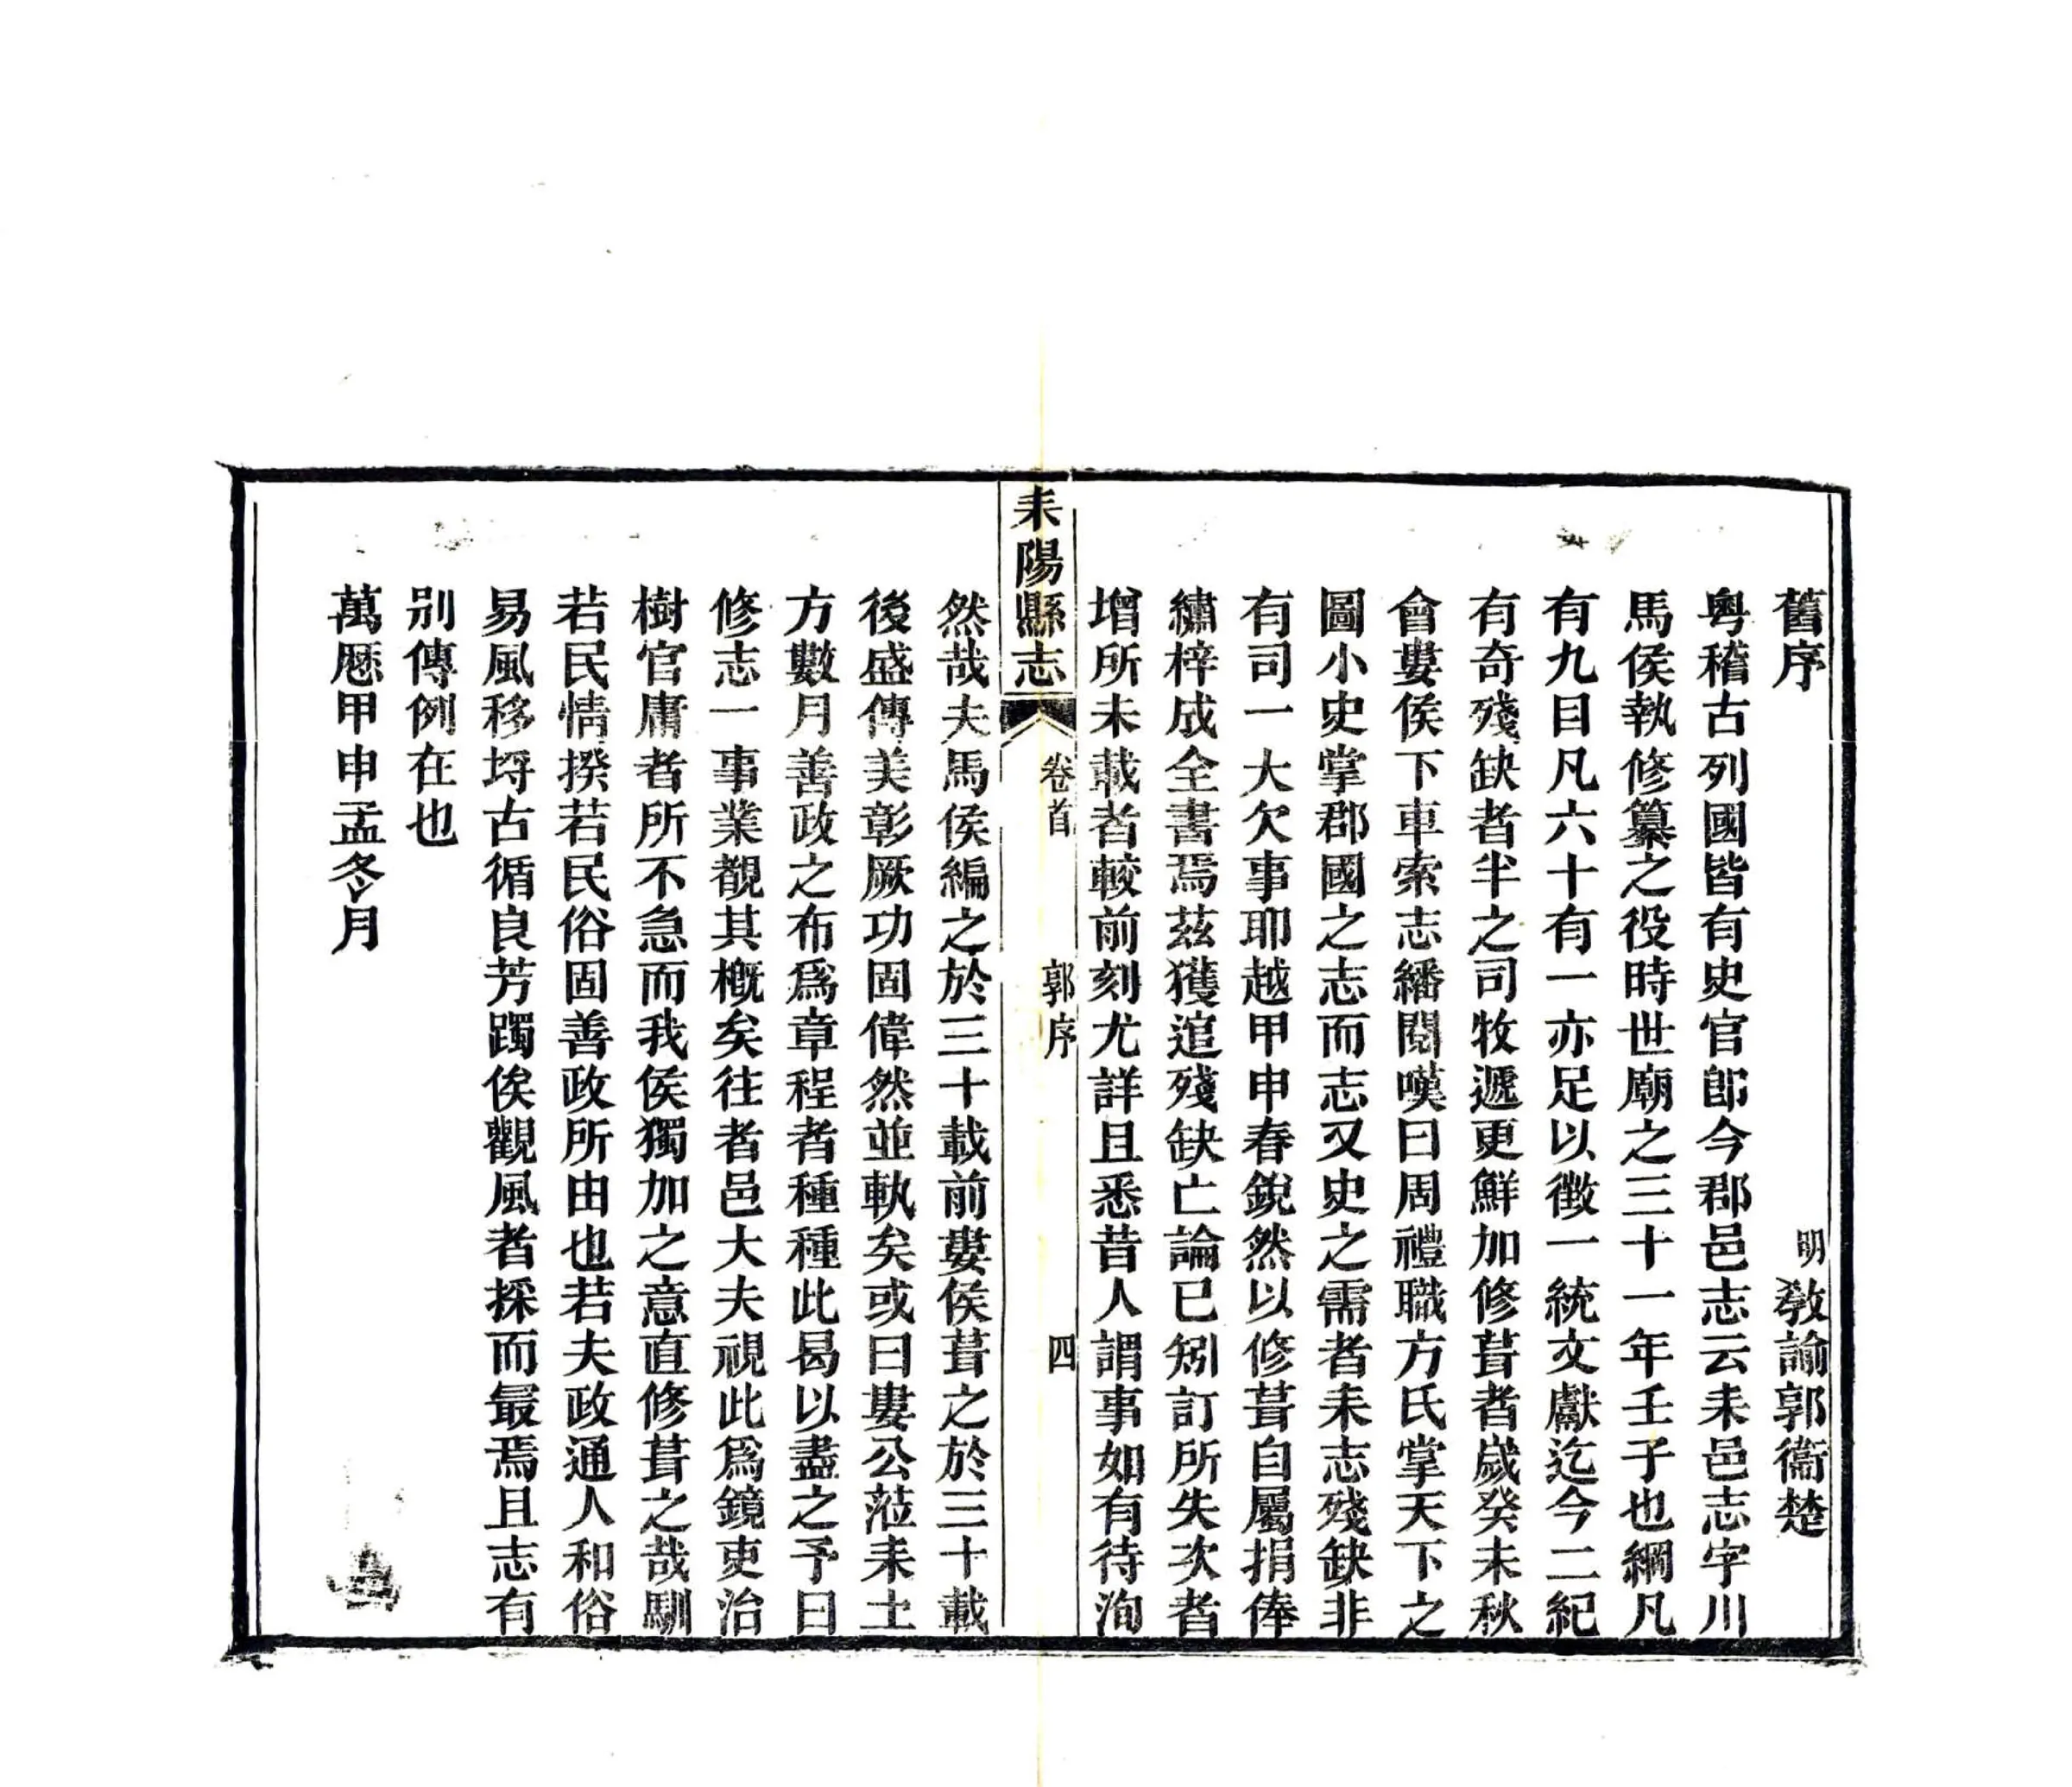 舊序
明教諭郭衞楚
粵稽古列國皆有史官郎今郡邑志云耒邑志字川
馬侯執修纂之役時世廟之三十一年壬子也綱凡
有九目凡六十有一亦足以徵一統文獻迄今二紀
有奇殘缺者半之司牧遞更鮮加修葺者歲癸未秋
會婁侯下車索志繙閱嘆曰周禮職方氏掌天下之
圖小史掌郡國之志而志又史之需者耒志殘缺非
有司一大欠事耶越甲申春銳然以修葺自屬捐俸
繡梓成全書焉茲獲逭殘缺亡論已矧訂所失次者
增所未載者較前刻尤詳且悉昔人謂事如有待洵
耒陽縣志
卷首
郭序
四
然哉夫馬侯編之於三十載前婁侯葺之於三十載
後盛傳美彰厥功固偉然並執矣或曰婁公蒞耒土
方數月善政之布爲章程者種種此曷以盡之予曰
修志一事業覩其槪矣往者邑大夫視此爲鏡吏治
樹官庸者所不急而我侯獨加之意直修葺之哉馴
若民情揆若民俗固善政所由也若夫政通人和俗
易風移埒古循良芳躅俟觀風者採而最焉且志有
別傳例在也
萬厯甲申孟冬月